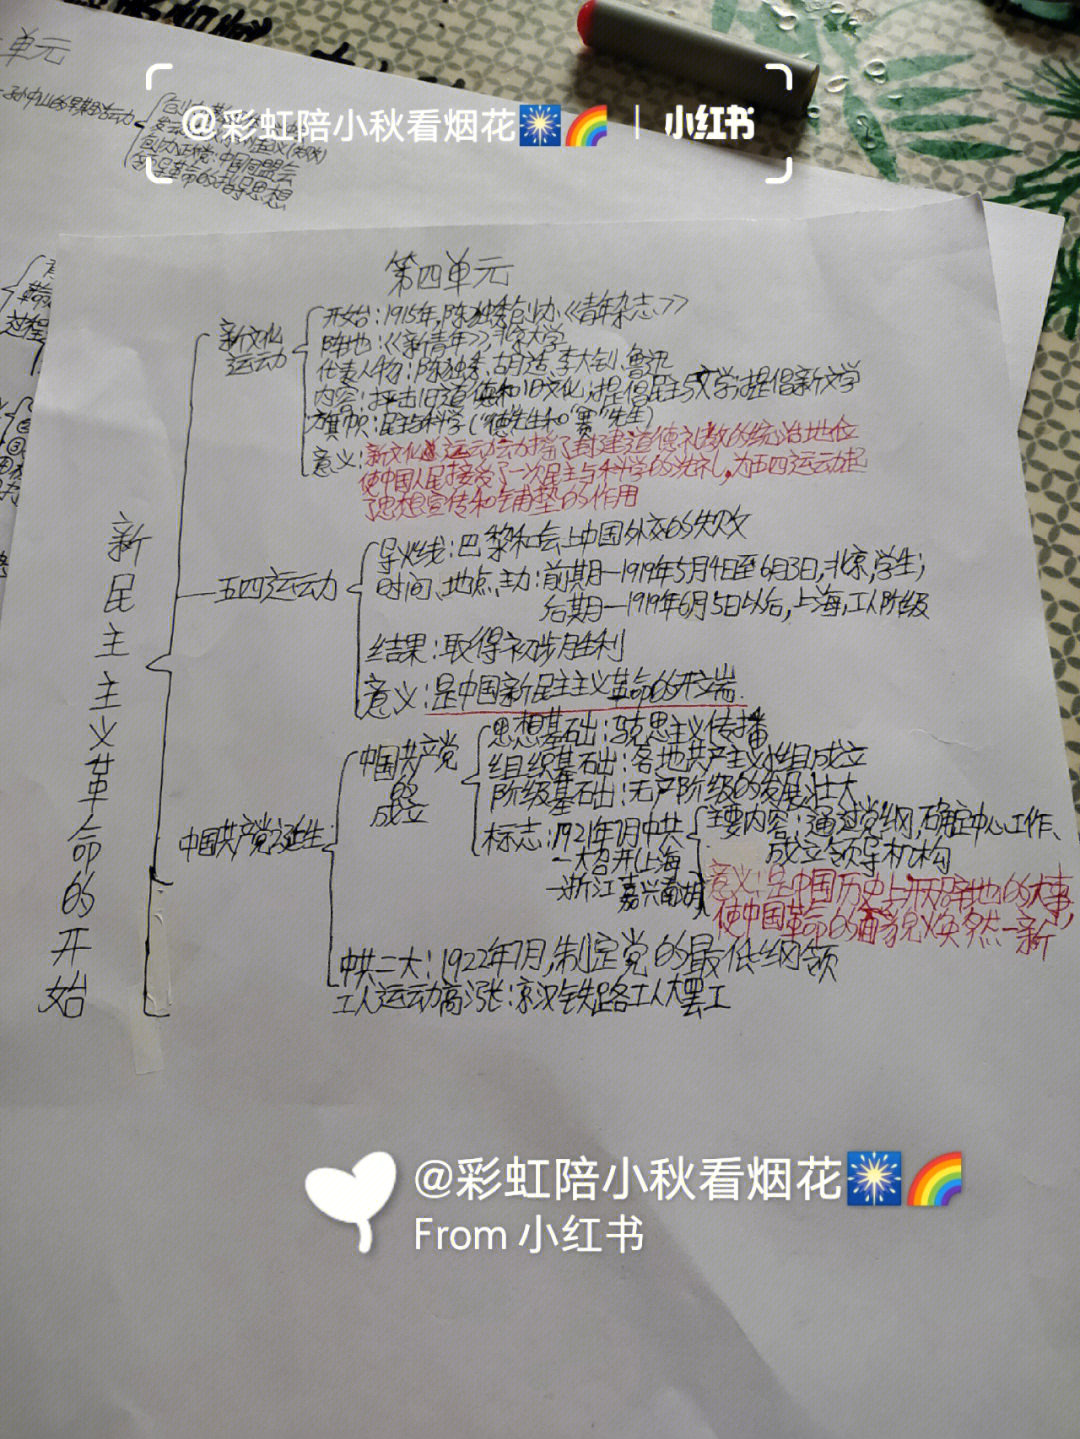 单元
@彩虹陪小秋看烟花 | 小红书
孙中山的早期活动
创办政党:中国同盟会
领导革命的指导思想
第四单元
新民主主义革命的开始
新文化运动
开始:1915年,陈独秀创办《青年杂志》
阵地:《新青年》北京大学
代表人物:陈独秀、胡适、李大钊、鲁迅
内容:抨击旧道德和旧文化;提倡民主与文学;提倡新文学
旗帜:民主与科学("德"先生和"赛"先生)
意义:新文化运动动摇了封建道德礼教的统治地位
使中国人民接受了一次民主与科学的洗礼,为五四运动起
了思想宣传和铺垫的作用
五四运动
导火线:巴黎和会上中国外交的失败
时间、地点、主力:前期—1919年5月4日至6月3日,北京,学生;
后期—1919年6月5日以后,上海,工人阶级
结果:取得初步胜利
意义:是中国新民主主义革命的开端
中国共产党诞生
中国共产党
的
成立
思想基础:马克思主义传播
组织基础:各地共产主义小组成立
阶级基础:无产阶级的发展壮大
标志:1921年7月中共
一大召开(上海
—浙江嘉兴南湖)
主要内容:通过党纲,确定中心工作、
成立领导机构
意义:是中国历史上开天辟地的大事,
使中国革命的面貌焕然一新
中共二大:1922年7月,制定党的最低纲领
工人运动高涨:京汉铁路工人大罢工
@彩虹陪小秋看烟花
From 小红书